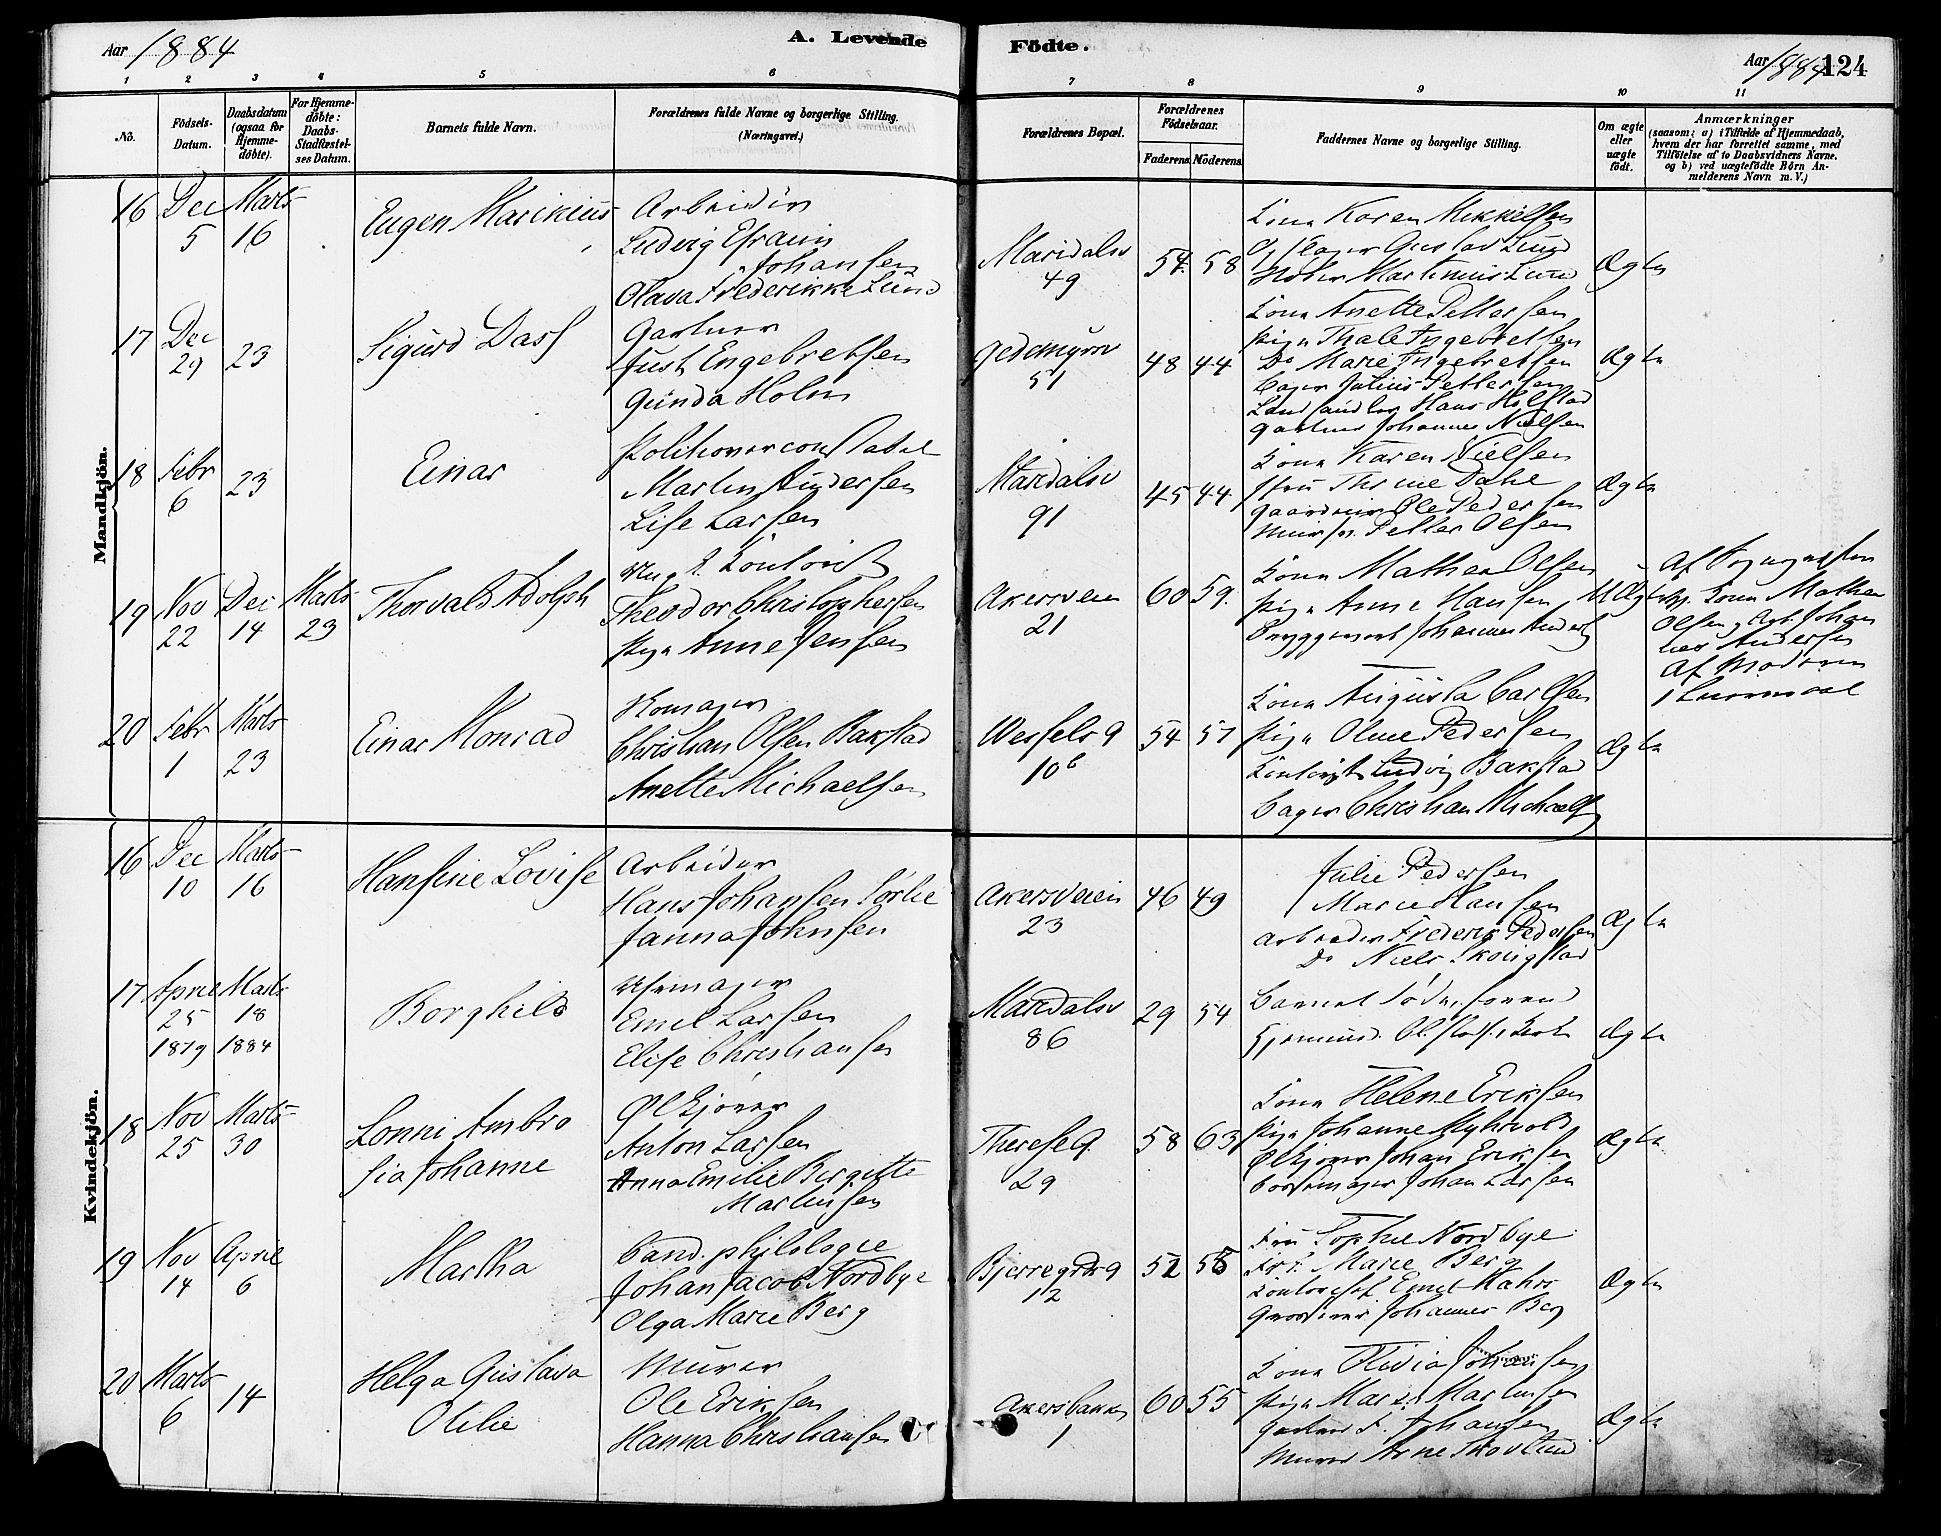 Aar 1884
A. Levende
Födte.
Aar 1884 124
1 2 3 4 5 6 7 8 9 10 11
No.
Födsels-Datum.
Daabsdatum (ogsaa for Hjemmedöbte).
For Hjemmedöbte: Daabs-Stadfæstelses Datum.
Barnets fulde Navn.
Forældrenes fulde Navne og borgerlige Stilling. (Næringsvei.)
Forældrenes Bopæl.
Forældrenes Födselsaar.
Faderens. Moderens.
Faddernes Navne og borgerlige Stilling.
Om ægte eller uægte födt.
Anmærkninger (saasom: a) i Tilfælde af Hjemmedaab, hvem der har forrettet samme, med Tilföielse af to Daabsvidners Navne, og b) ved uægtefödte Börn Anmelderens Navn m. V.)
Mandkjön.
16 Dec 5 Marts 16
Eugen Marinius
Arbeider
Ludvig Efraim
Johansen
Olava Frederikke Lund
Maridalsv
49
54 58
Kona Karen Mikkelsen
Gustav Lund
Martinius Lund
Ægte
17 Dec 29 23
Sigurd Dass
Gartner
Just Engebretsen
Gunda Holm
Gedemyrsv
51
48 44
Kona Anette Pettersen
Pige Thale Ingebretsen
Do Marie Ingebretsen
Bager Julius Pettersen
Hans Holstad
Gartner Johannes Nielsen
Ægte
18 Febr 6 23
Einar
Politioverconstabel
Martin Andersen
Lise Larsen
Maridalsv
91
45 44
Kona Karen Nielsen
Fru Thrine Dahl
Ole Pedersen
Petter Olsen
Ægte
19 Nov 22 Dec 14 Marts 23
Thorvald Adolph
Ung. K. Kontorist
Theodor Christophersen
Pige Anne Jensen
Akersveien
21
60 59
Kona Mathea Olsen
Pige Anne Hansen
Bryggearb Johannes Anders
Uægte
Kona Mathea
Olsen, Arb. Johan
nes Andersen
Af Moderen
20 Febr 1 Marts 23
Einar Monrad
Skomager
Christian Olsen Bakstad
Anette Michaelsen
Wessels g
10b
54 57
Kona Augusta Carlsen
Pige Oline Pedersen
Kontorist Ludvig Bakstad
Bager Christian Michaels
Ægte
Kvindekjön.
16 Dec 10 Marts 16
Hansine Lovise
Arbeider
Hans Johansen Sörlie
Janna Johnsen
Akersveien
23
46 49
Julie Pedersen
Marie Hansen
Arbeider Frederik Pedersen
Do Niels Skougstad
Ægte
17 April 25 1879 Marts 18 1884
Borghild
Urmager
Emil Larsen
Elise Christiansen
Maridalsv
86
29 54
Barnet
Ægte
18 Nov 25 Marts 30
Lonni Ambro
sia Johanne
Ölkjörer
Anton Larsen
Anna Emilie Bergitte
Martinsen
Therese G.
29
58 63
Kona Helene Eriksen
Pige Johanne Myhrvold
Ölkjörer Johan Eriksen
Johan Larsen
Ægte
19 Nov 14 April 6
Martha
Cand. philologie
Johan Jacob Nordbye
Olga Marie Berg
Bjerregrds g
12
52 58
Fru Sophie Nordbye
Frk. Marie Berg
Kontorist Emil Mahrs
Grosserer Johannes Berg
Ægte
20 Marts 6 14
Helga Gustava
Otilie
Murer
Ole Eriksen
Hanna Christiansen
Akersbakken
1
60 55
Kona Olivia Johansen
Pige Maren Martinsen
Gartner F. Johansen
Murer Arne Skovlund
Ægte